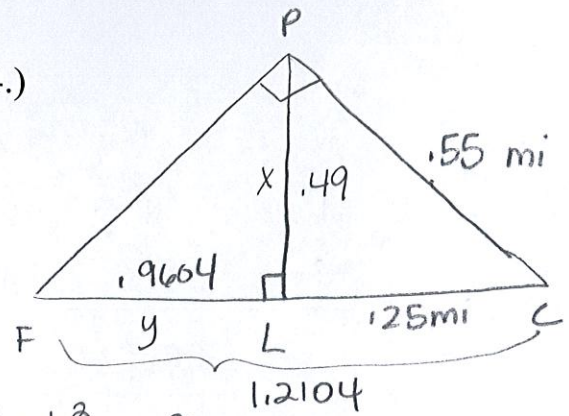 P
.)
.55 mi
x .49
.9604
.25mi
F y L C
1.2104
2